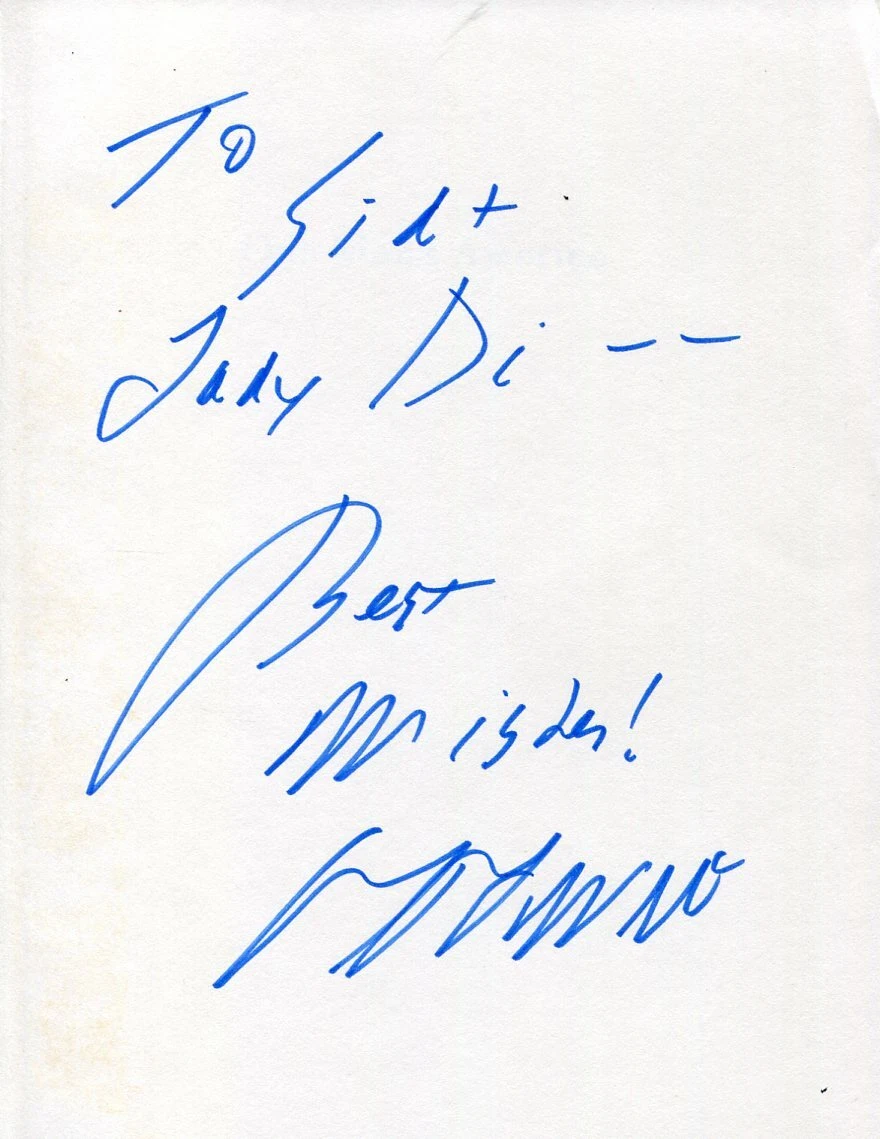 To
Sid +
Lady Di --
Best
Wishes!